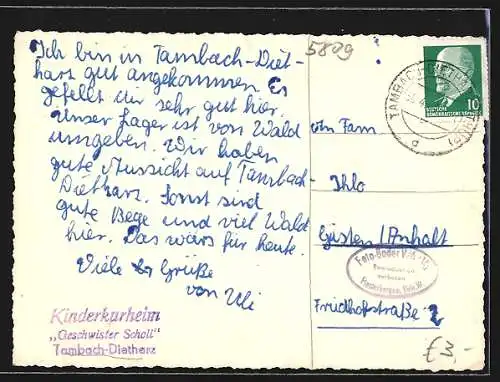 Ich bin in Tambach-Diet-
harz gut angekommen Es
gefellt mir sehr gut hier.
Unser Lager ist von Wald
umgeben. Wir haben
gute Aussicht auf Tambach-
Dietharz. Sonst sind
gute Bege und viel Wald
hier. Das wärs für heute.
Viele Grüße
von Uli
Kinderkurheim
„Geschwister Scholl"
Tambach-Dietharz
5809
TAMBACH-DIETHARZ
10
DEUTSCHE
DEMOKRATISCHE REPUBLIK
Fam
Ihlo
Güsten/Anhalt
Foto-Bäder
Friedhofstraße 2
€3,-